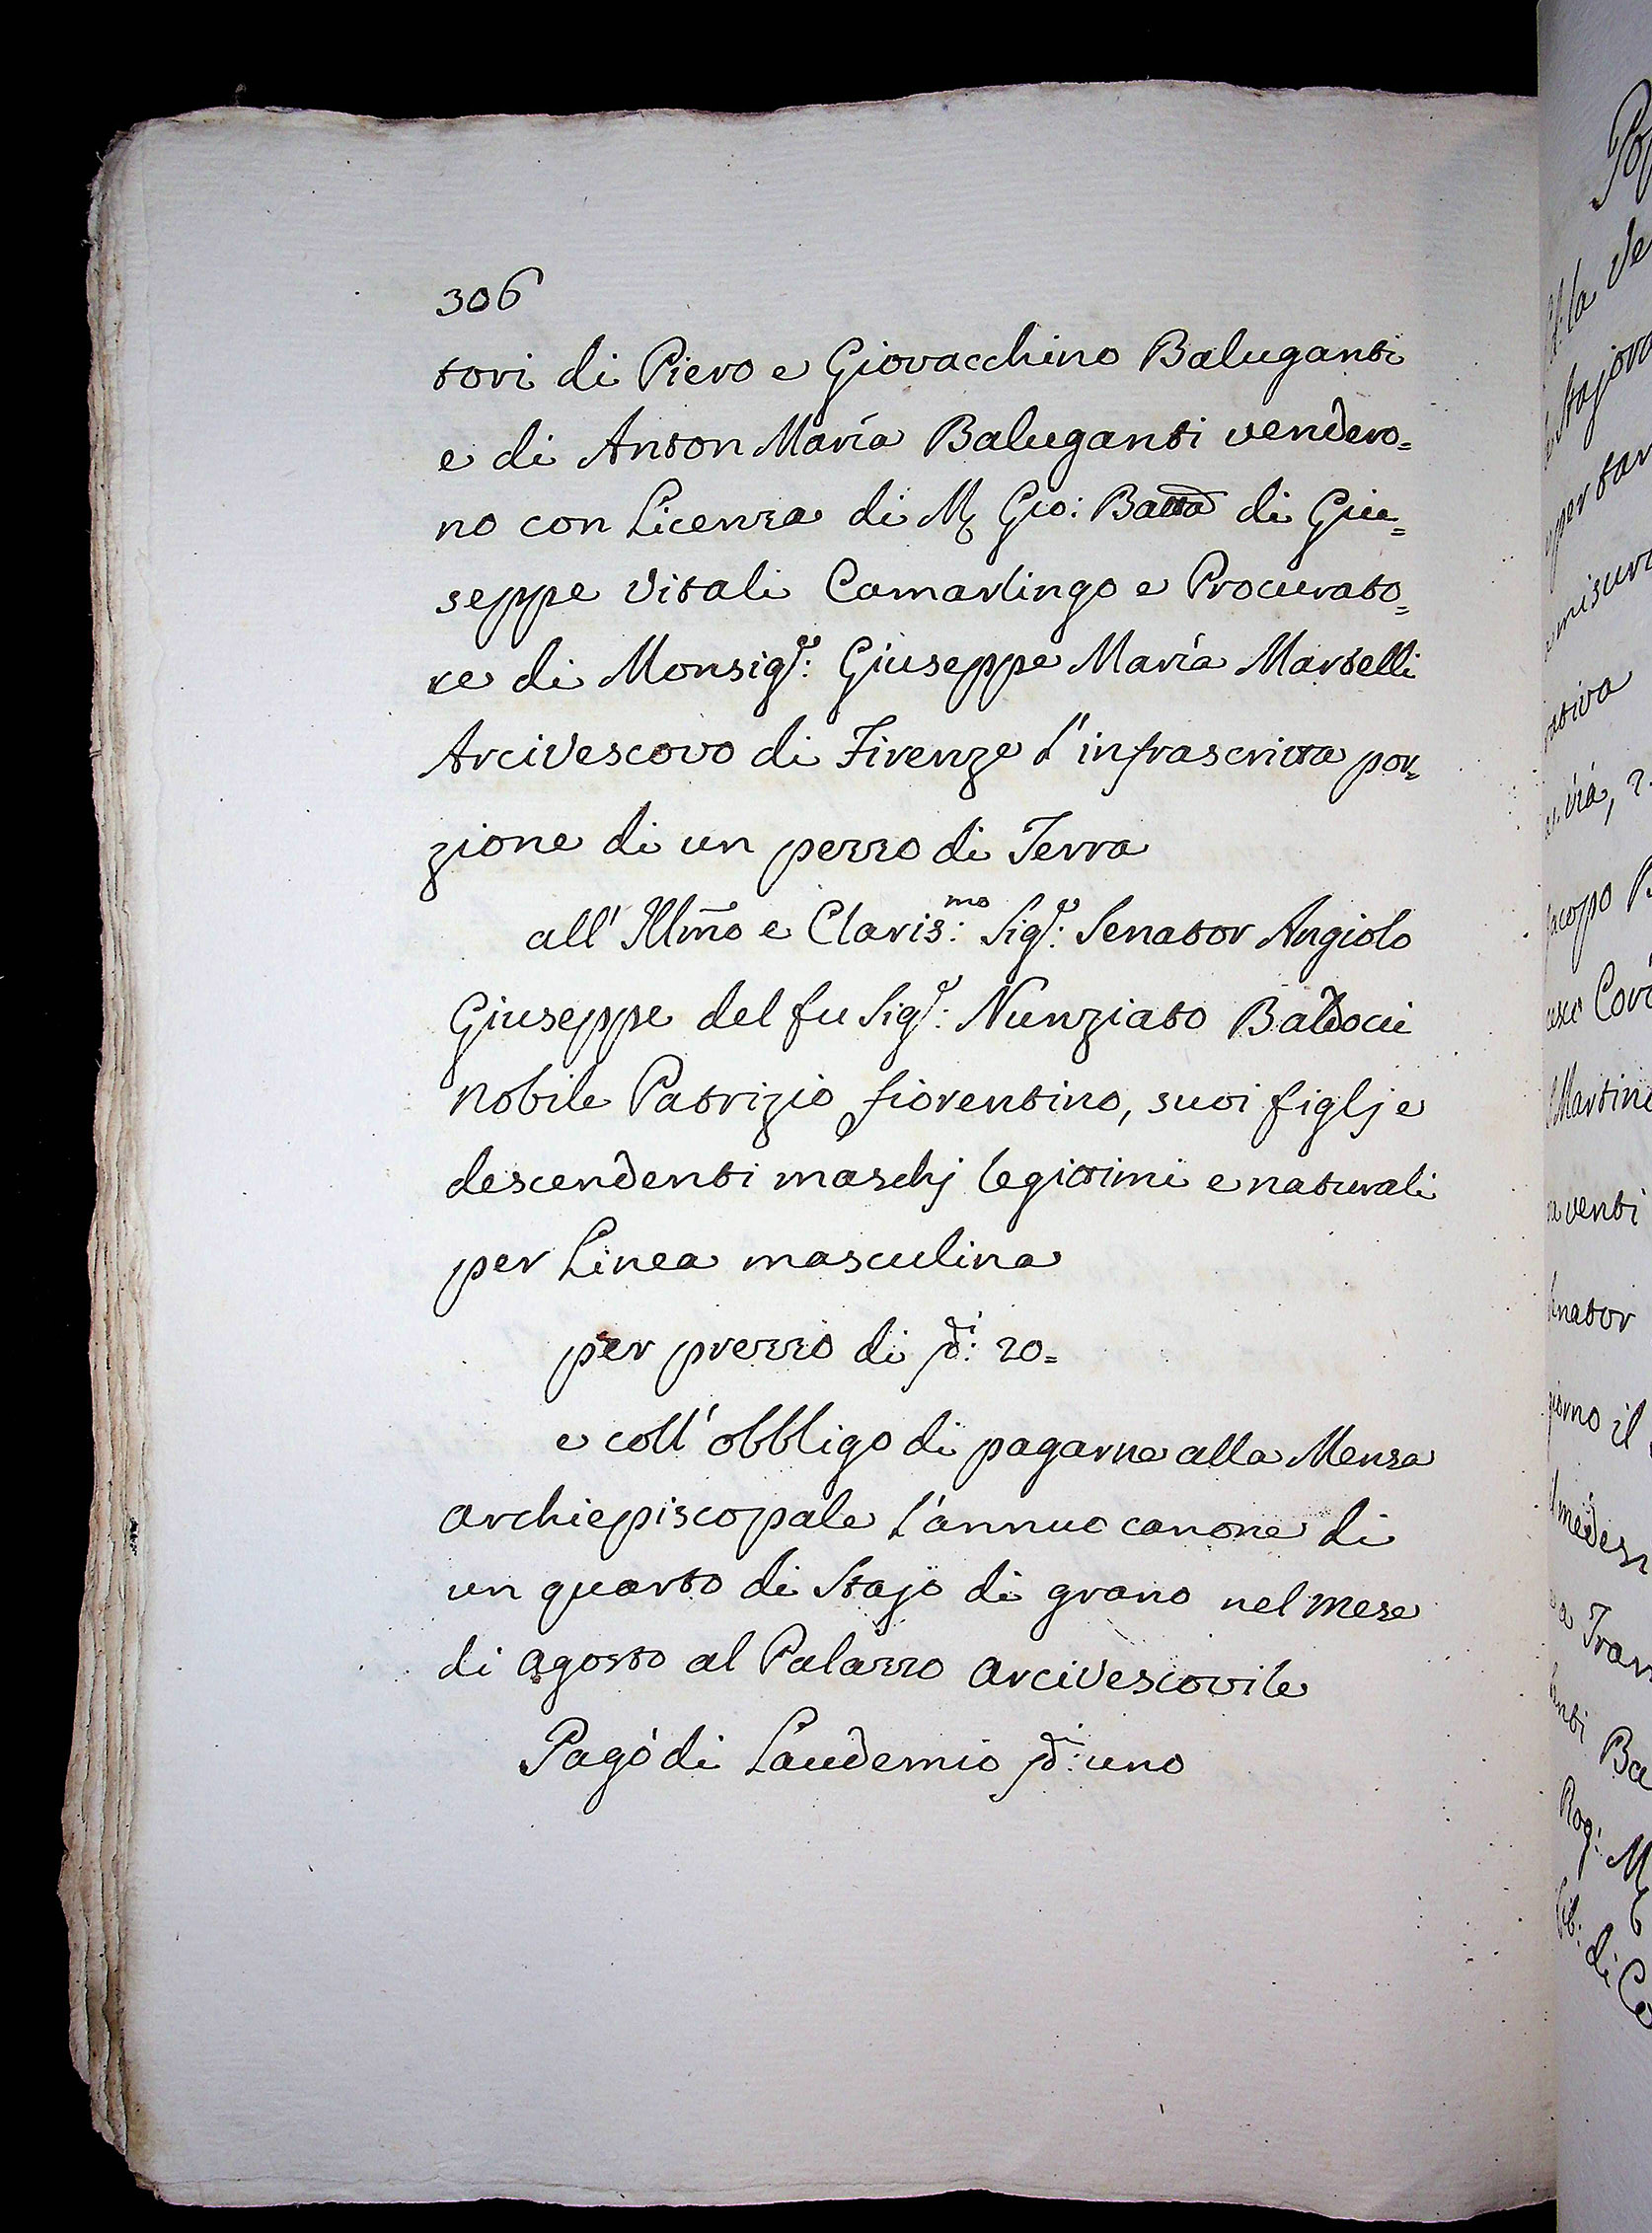 306
tori di Piero e Giovacchino Baluganti
e di Anton Maria Baluganti vendero=
no con Licenza di M. Gio: Batta di Giu=
seppe Vitali Camarlingo e Procurato=
re di Monsigr: Giuseppe Maria Martelli
Arcivescovo di Firenze l'infrascritta por=
zione di un pezzo di Terra
all' Illmo e Claris:mo Sigr: Senator Angiolo
Giuseppe del fu Sigr: Nunziato Baldocci
nobile Patrizio fiorentino, suoi figlj e
descendenti maschj legittimi e naturali
per Linea masculina
per prezzo di di: 20=
e coll' obbligo di pagarne alla Mensa
archiepiscopale l'annuo canone di
un quarto di Stajo di grano nel mese
di agosto al Palazzo arcivescovile
Pagò di Laudemio di: uno